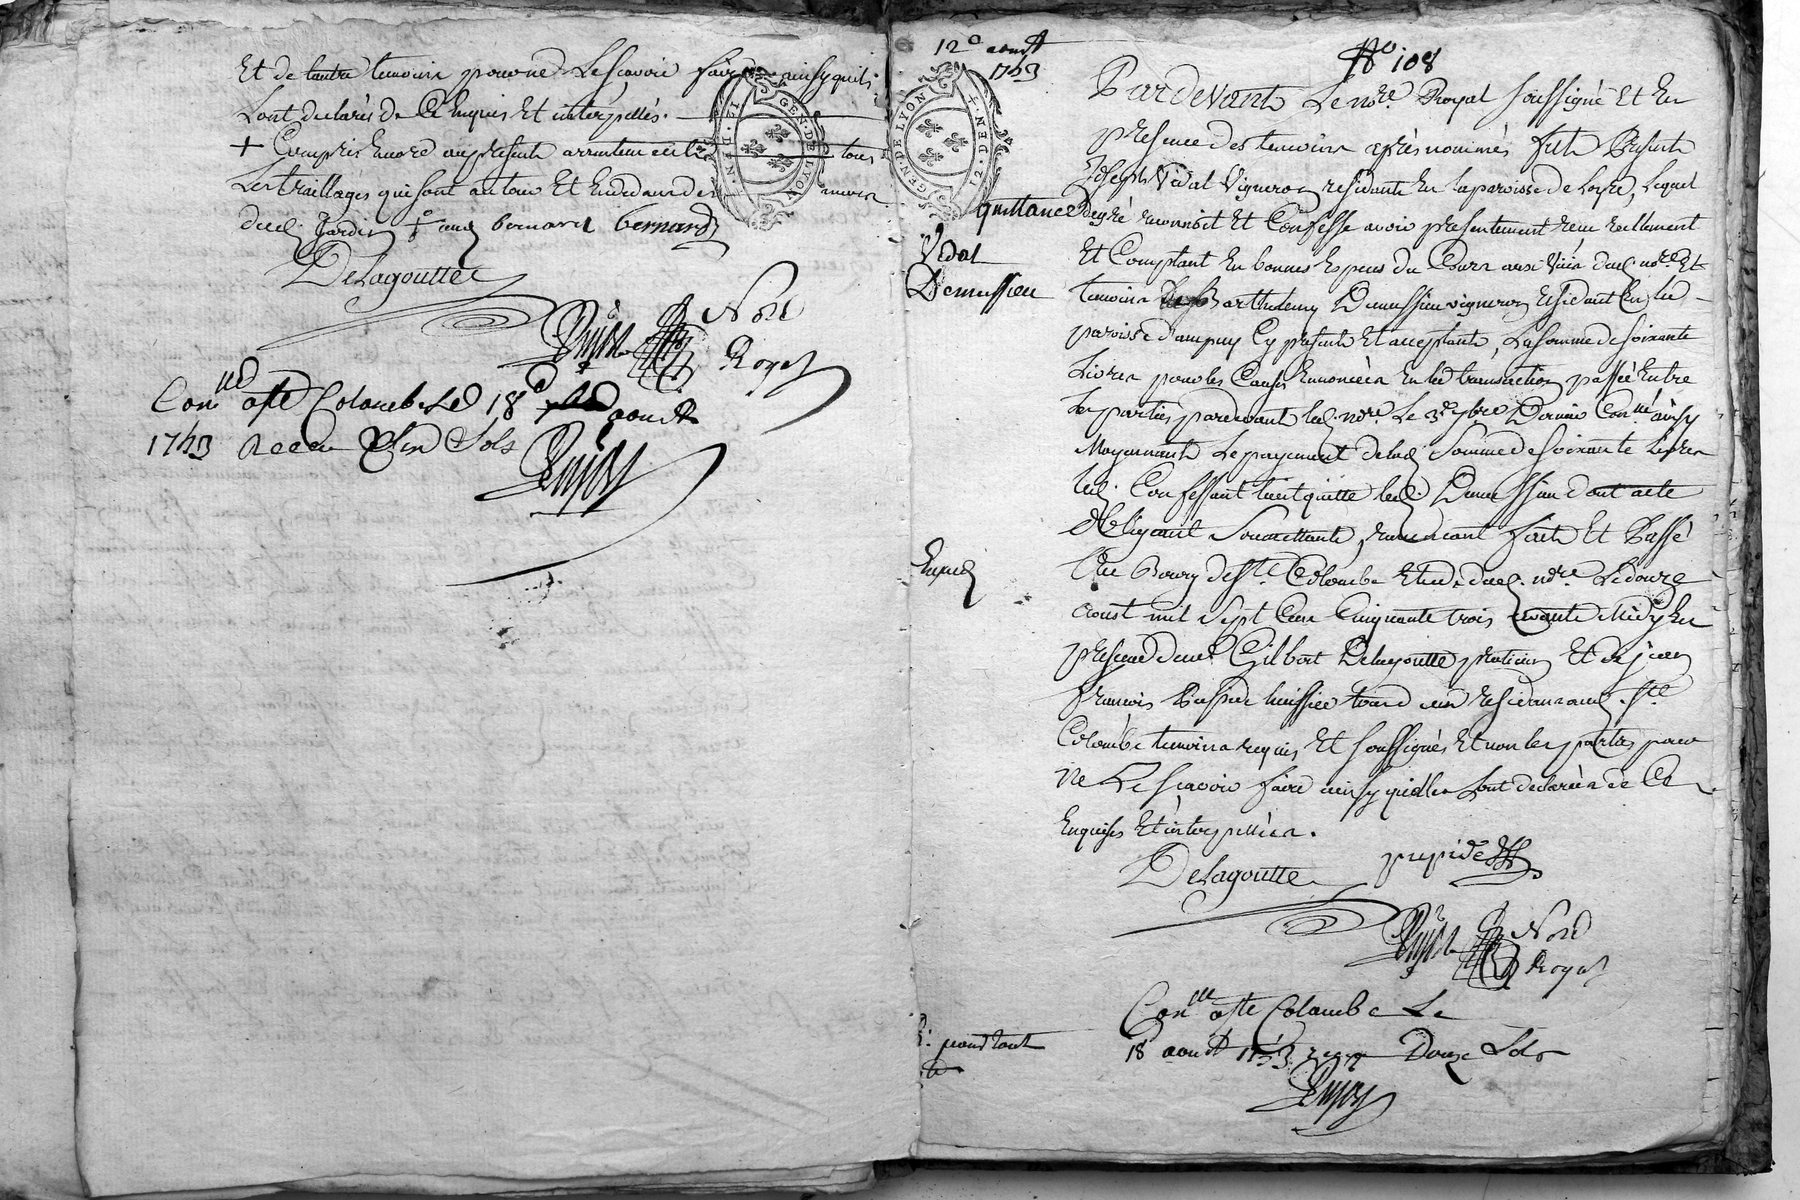 Et de lautre temoin pour ne Le scavoir faire ainsy quils
Lont declarés de Ce Enquis Et interpellés.
+ Compris Encore au present tous
Les treillages qui sont autour Et En dedans des
dud. Jardin aud. bernard bernard
Delagoutte
Not.
Royal
Con.lle aste Colombe Le 18e aoust
1753 Receu Sols
GEN.DE.LYON
12.DEN.
12e aoust
1753
No 108
quittance
Vidal
Demussieu
Pardevant Le nore. Royal soussigné Et En
presence des temoins après nommés fut Present
Joseph Vidal Vigneron residant En la paroisse de Loyre, Lequel
de gré reconnoit Et Confesse avoir presentement receu reellement
Et Comptant En bonnes Especes du Cours aux Vües dud. nore. Et
temoins de Barthelemy Demussieu vigneron residant En lad.
paroisse d'ampuy Cy present Et acceptant, La somme de soixante
Livres pour les Causes Enoncées En la transaction passée Entre
Les parties pardevant led. nore. Le 3e. 7bre Dernier Con.lé ainsy
Moyennant Le payement de lad. Somme de soixante Livres
led. Confessant tient quitte led. Demussieu dont acte
Obligeant Soumettant, renoncant fait Et Passé
Au Bourg de Ste. Colombe Etude dud. nore. Le douze
aoust mil sept Cen Cinquante trois avant Midy En
presence de me. Gilbert Delagoutte praticien Et de jean
francois huissier resid. aud. Ste.
Colombe temoins requis Et soussignés Et non les parties pour
ne Le scavoir faire ainsy quelles Lont declarées de Ce
Enquises Et interpellées.
Delagoutte
Not.
Royal
Con.lle aste Colombe Le
18e aoust 1753 receu Douze Sols